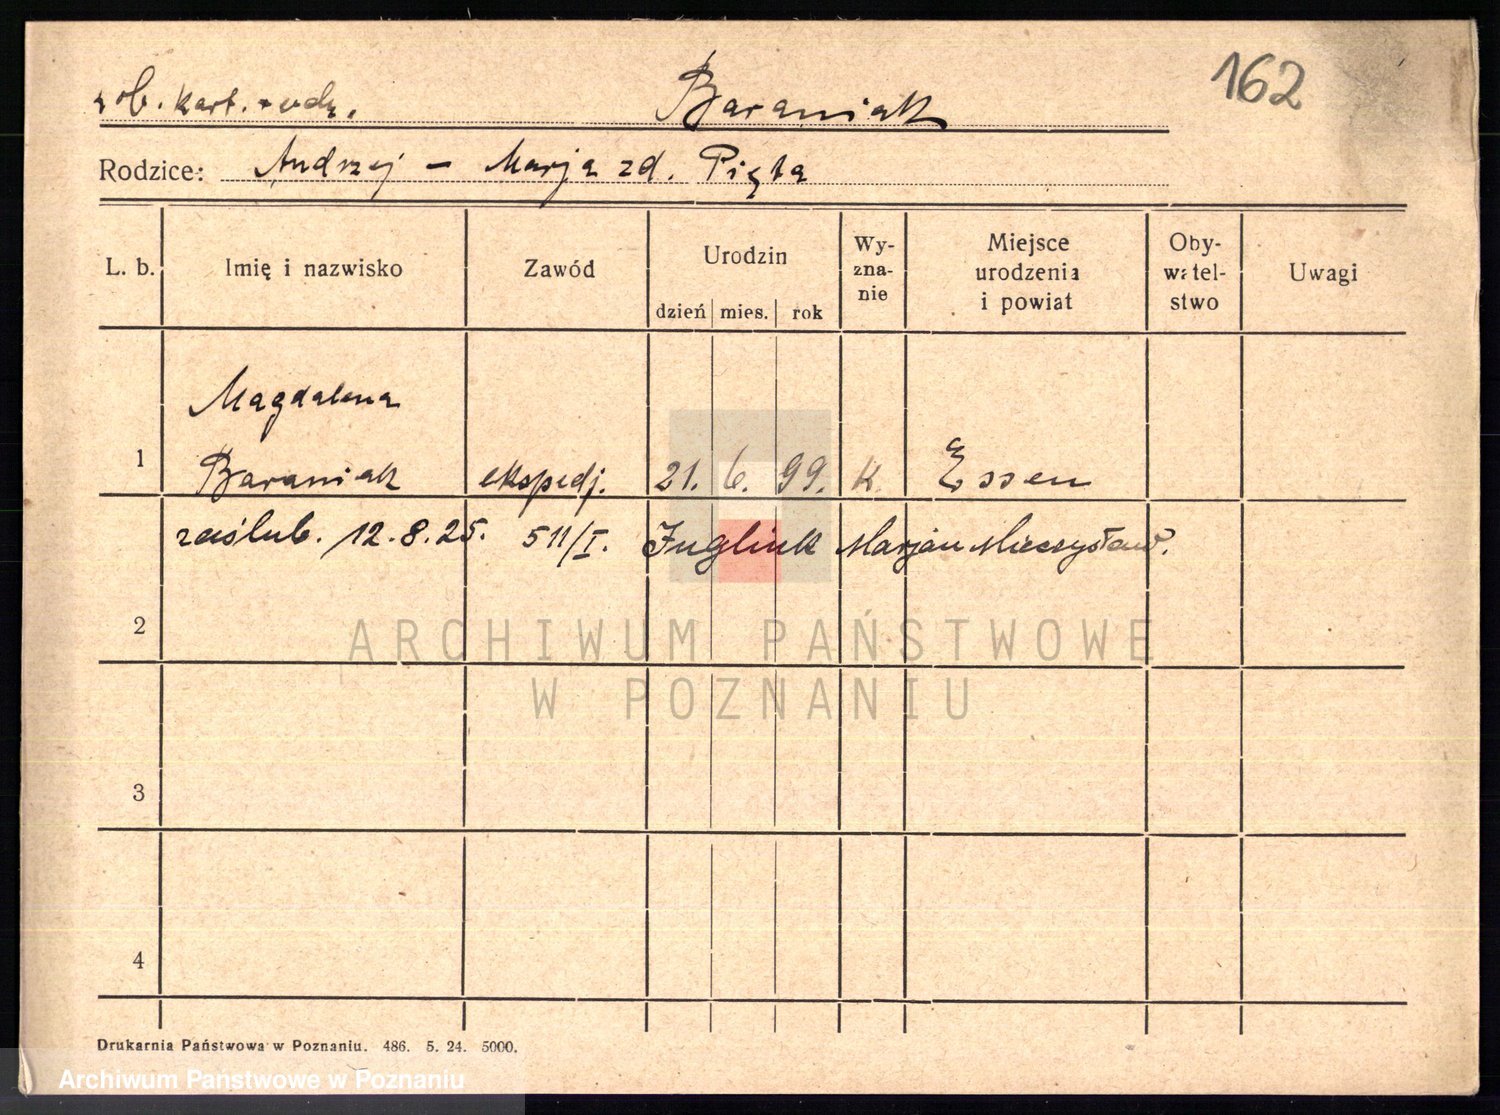 162
zob. kart. rodz. Baraniak
Rodzice: Andrzej - Marja zd. Pięta
L. b. Imię i nazwisko Zawód Urodzin dzień mies. rok Wy-znanie Miejsce urodzenia i powiat Oby-watel-stwo Uwagi
Magdalena
1 Baraniak ekspedj. 21. 6. 99. K. Essen
zaślub. 12.8.25. 511/I. Juglink Marjan Mieczysław.
2
ARCHIWUM PAŃSTWOWE
W POZNANIU
3
4
Drukarnia Państwowa w Poznaniu. 486. 5. 24. 5000.
Archiwum Państwowe w Poznaniu